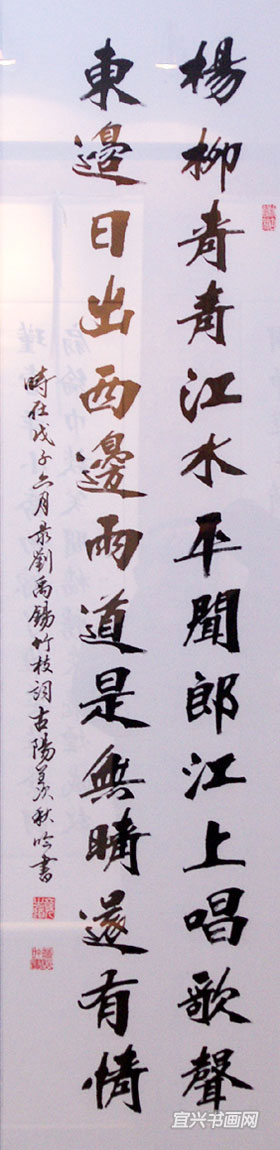 楊柳青青江水平聞郎江上唱歌聲
東邊日出西邊雨道是無晴還有情
時在戊子六月录劉禹錫竹枝詞古陽羨秋吟書
宜兴书画网